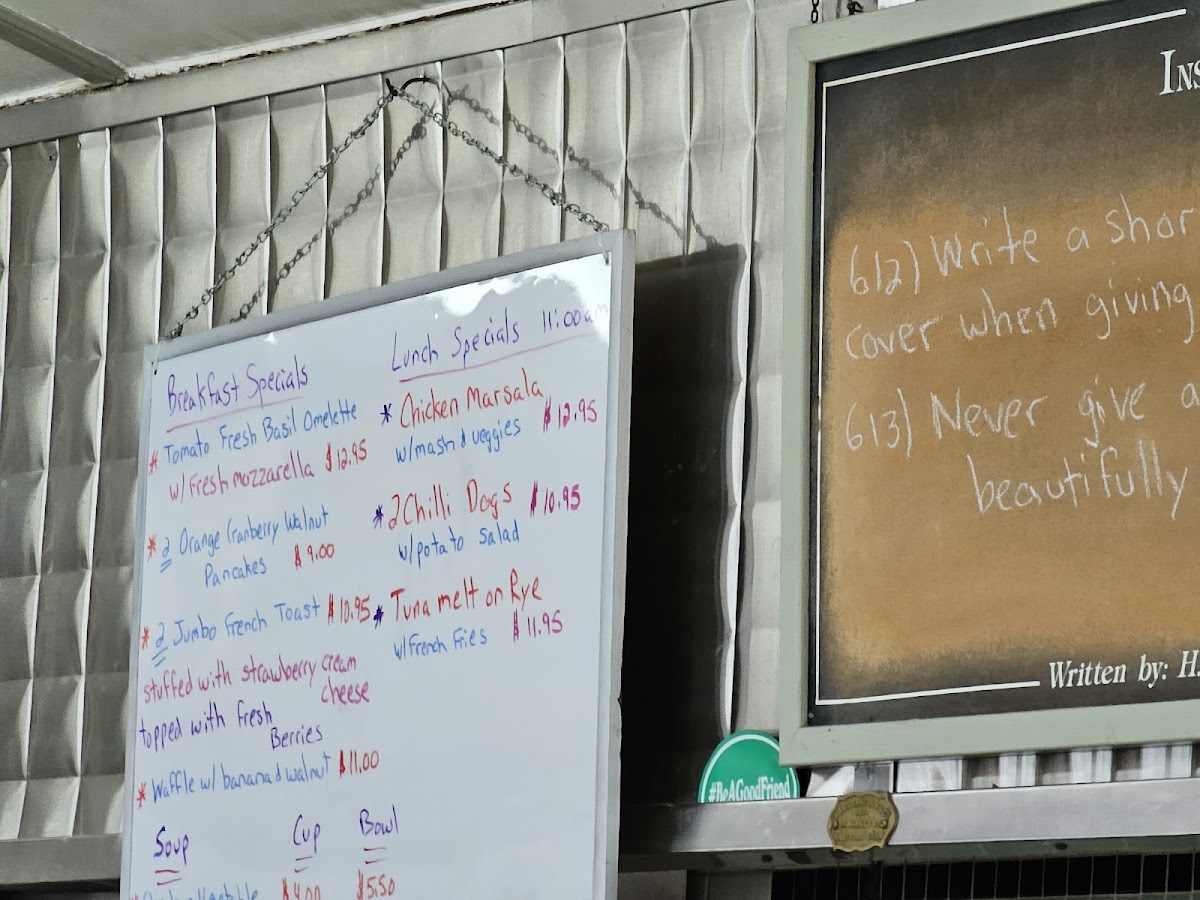 Breakfast Specials
* Tomato Fresh Basil Omelette
w/ Fresh mozzarella $12.95
* 2 Orange Cranberry Walnut
Pancakes $9.00
* 2 Jumbo French Toast $10.95
stuffed with strawberry cream
cheese
topped with fresh
Berries
* Waffle w/ banana & walnut $11.00
Soup Cup Bowl
$4.00 $5.50
Lunch Specials 11:00am
* Chicken Marsala
w/mash & veggies $12.95
* 2 Chilli Dogs $10.95
w/potato salad
* Tuna melt on Rye
w/French Fries $11.95
INS
612) Write a shor
cover when giving
613) Never give a
beautifully
Written by: H.
#BeAGoodFriend